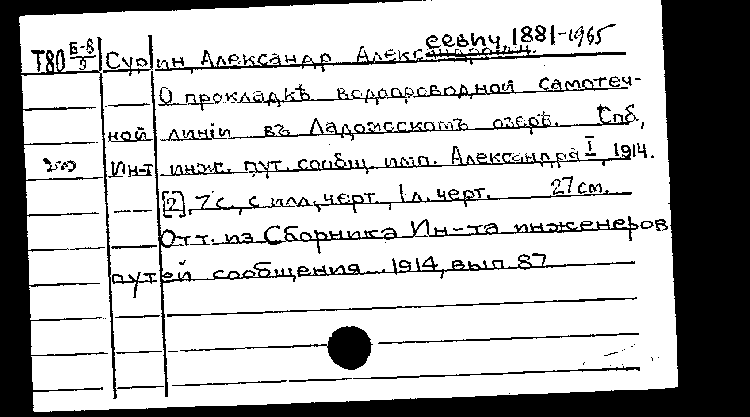 еевич 1881-1965
Т80 Б-8/9 Сурин, Александр Александрович.
О прокладкѣ водопроводной самотеч-
ной линіи въ Ладожскомъ озерѣ. Спб,
Ин-т инж. пут. сообщ. имп. Александра I, 1914.
[2], 7 с., с илл., черт., 1 л. черт. 27 см.
Отт. из Сборника Ин-та инженеров
путей сообщения 1914, вып. 87